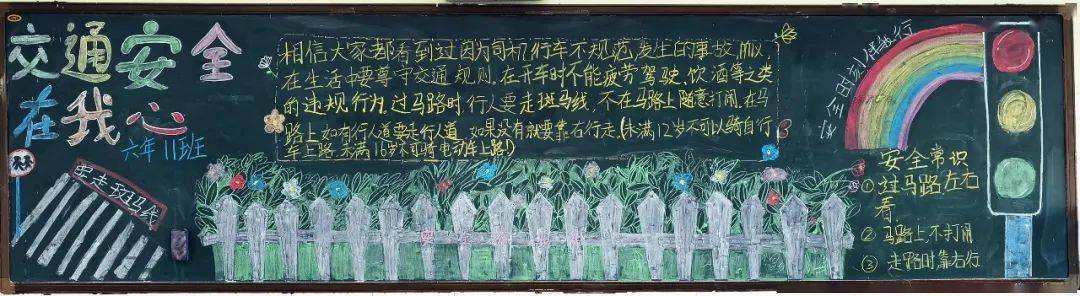 交通安全
在我心
六年11班
要走斑马线
相信大家都看到过因为司机行车不规范发生的事故,所以
在生活中要尊守交通规则。在开车时不能疲劳驾驶,饮酒等之类
的违规行为。过马路时,行人要走斑马线,不在马路上随意打闹。在马
路上如有行人道要走行人道,如果没有就要靠右行走。(未满12岁不可以骑自行
车上路,未满16岁不可骑电动车上路!)
安全时刻伴我行
安全常识
①过马路左右
看
②马路上,不打闹
③走路时,靠右行